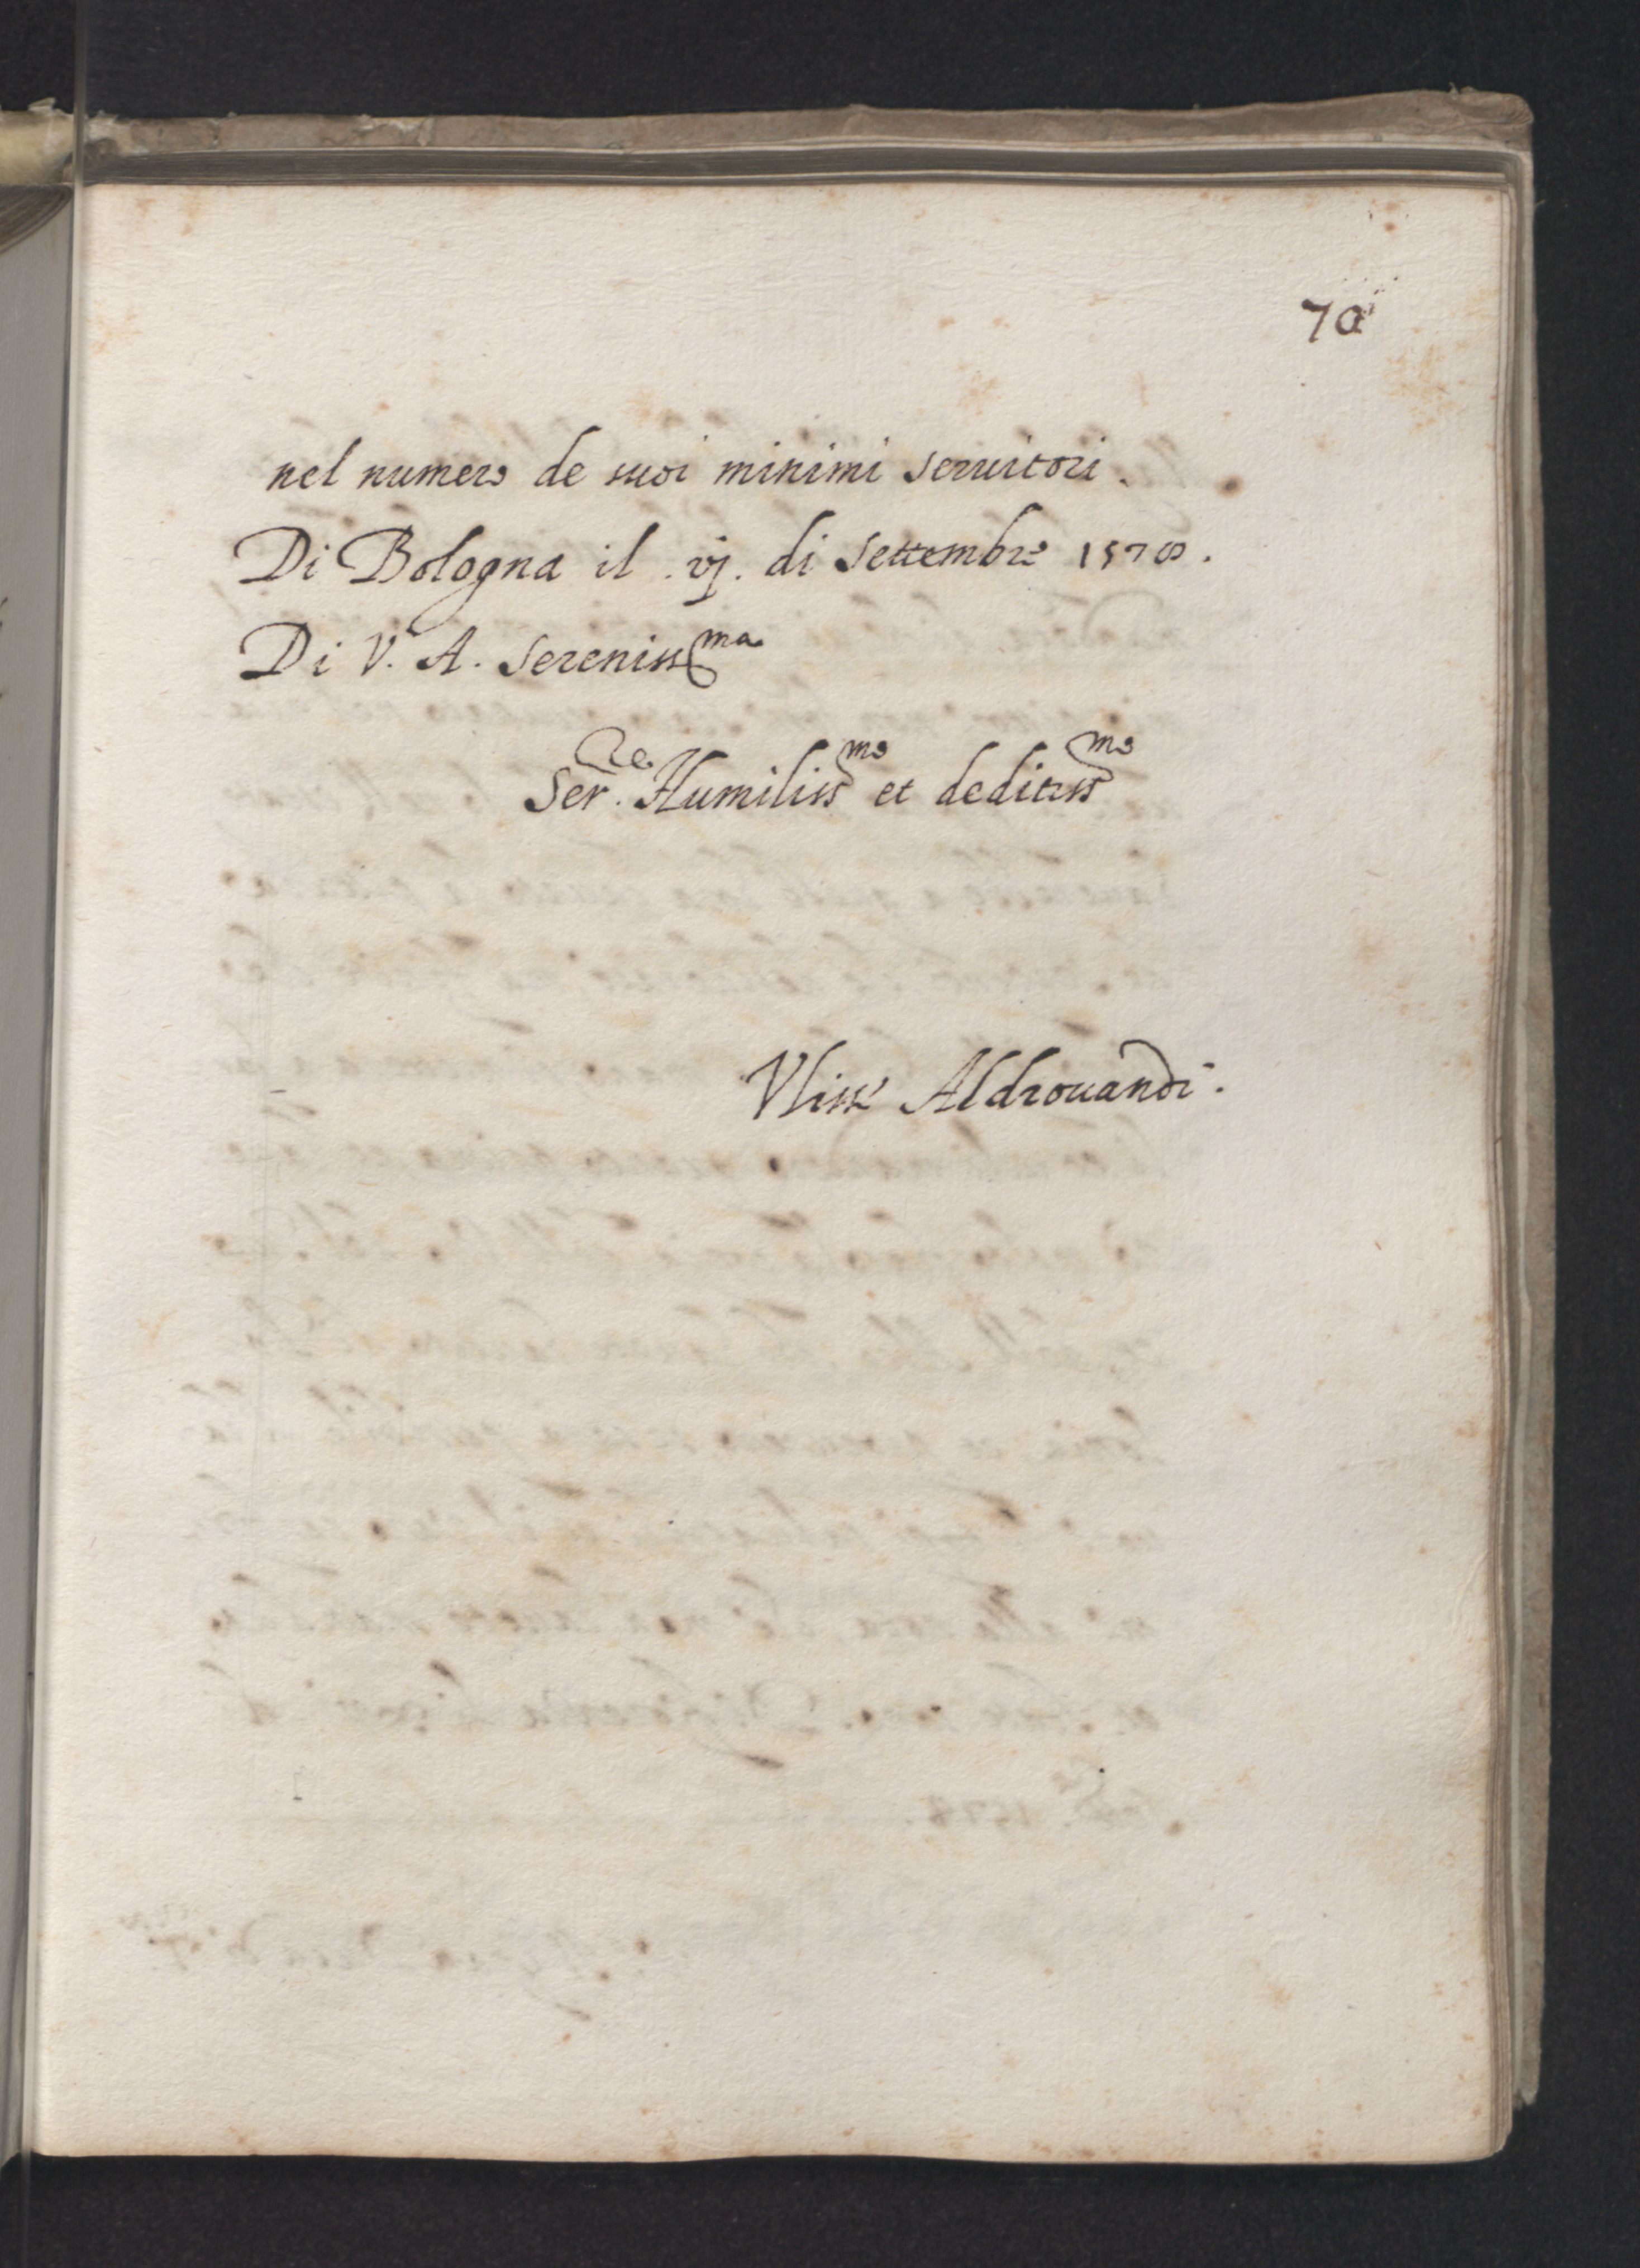 70
nel numero de suoi minimi seruitori.
Di Bologna il .vj. di settembre 1578.
Di V. A. sereniss.ma
Ser.re Humiliss.mo et deditiss.mo
Vliss Aldrouandi.